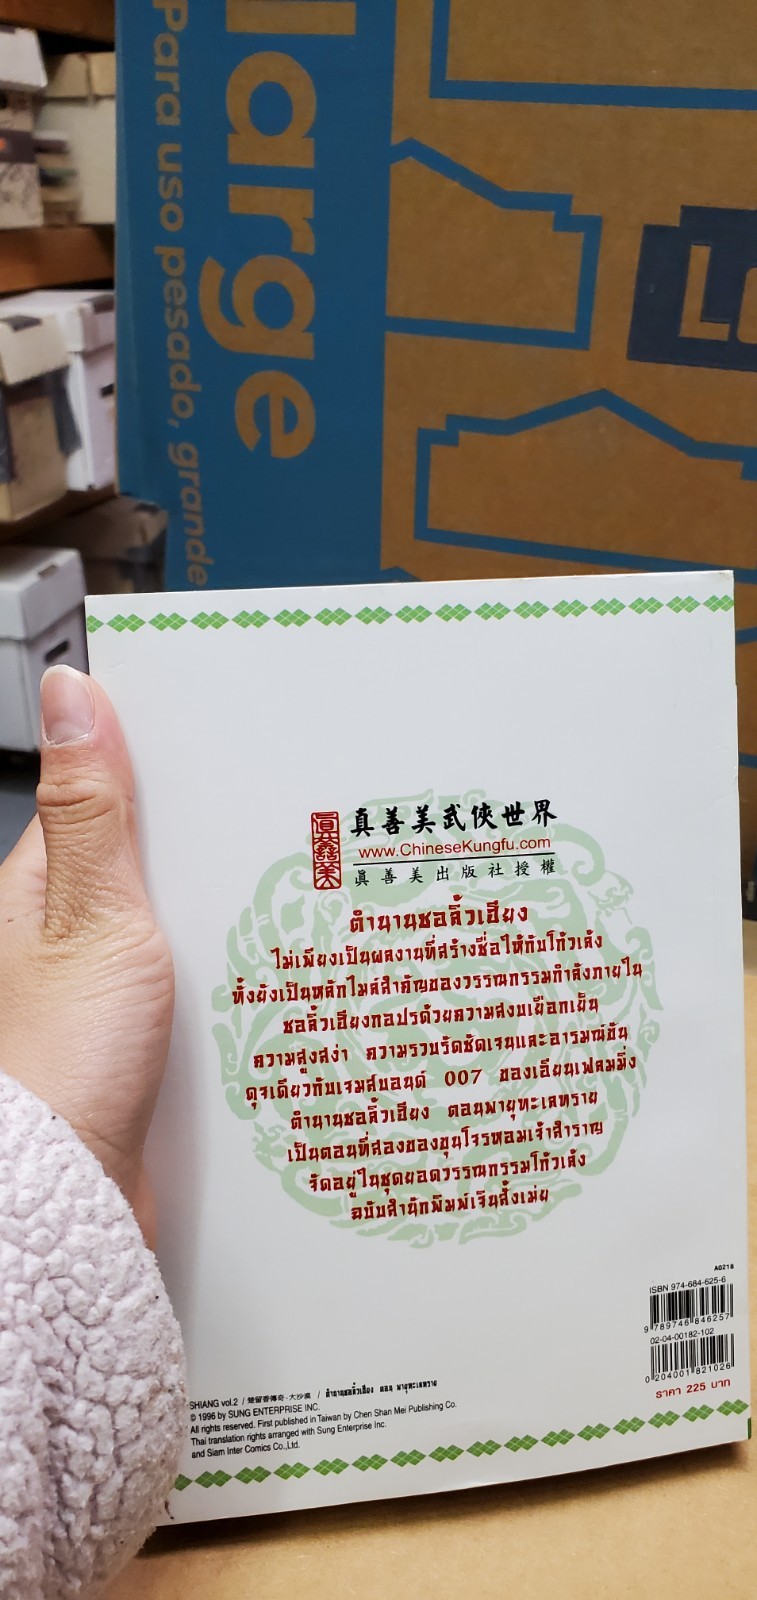 large
Para uso pesado, grande
眞善美
真善美武俠世界
www.ChineseKungfu.com
眞善美出版社授權
ตำนานชอลิ้วเฮียง
ไม่เพียงเป็นผลงานที่สร้างชื่อให้กับโก้วเล้ง
ทั้งยังเป็นหลักไมล์สำคัญของวรรณกรรมกำลังภายใน
ชอลิ้วเฮียงกอปรด้วยความสงบเยือกเย็น
ความสูงสง่า ความรวบรัดชัดเจนและอารมณ์ขัน
ดุจเดียวกับเจมส์บอนด์ 007 ของเอียนเฟลมมิ่ง
ตำนานชอลิ้วเฮียง ตอนพายุทะเลทราย
เป็นตอนที่สองของขุนโจรหอมเจ้าสำราญ
จัดอยู่ในชุดยอดวรรณกรรมโก้วเล้ง
ฉบับสำนักพิมพ์เจินสั้งเม่ย
A0218
ISBN 974-684-625-6
9 789746 846257
02-04-00182-102
0 204001 821026
ราคา 225 บาท
SHIANG vol.2 / 楚留香傳奇-大沙漠 / ตำนานชอลิ้วเฮียง ตอน พายุทะเลทราย
© 1996 by SUNG ENTERPRISE INC.
All rights reserved. First published in Taiwan by Chen Shan Mei Publishing Co.
Thai translation rights arranged with Sung Enterprise Inc.
and Siam Inter Comics Co.,Ltd.